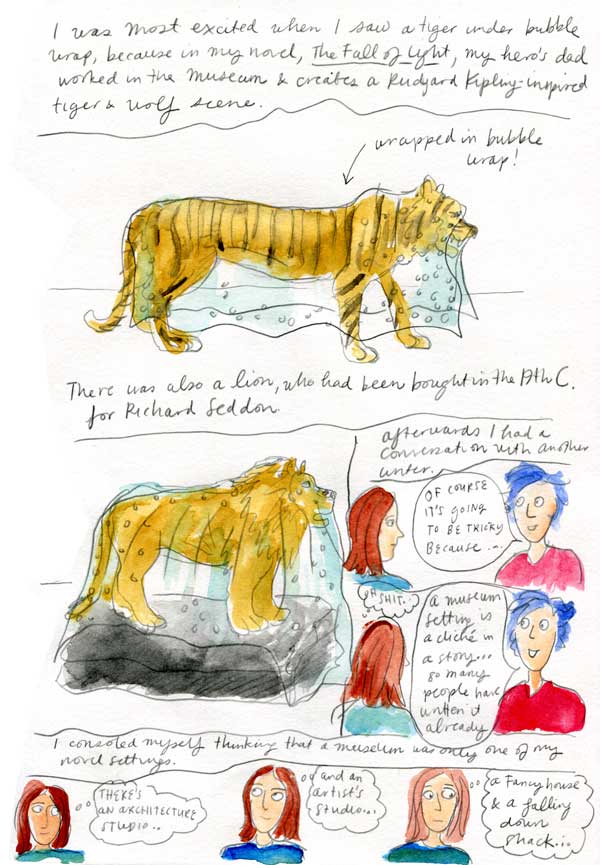 I was most excited when I saw a tiger under bubble
wrap, because in my novel, The Fall of Light, my hero's dad
worked in the Museum & creates a Rudyard Kipling-inspired
tiger & wolf scene.
wrapped in bubble
wrap!
There was also a lion, who had been bought in the 19th C.
for Richard Seddon.
afterwards I had a
conversation with another
writer.
OF COURSE
IT'S GOING
TO BE TRICKY
BECAUSE...
OH SHIT..
a museum
setting is
a cliché in
a story...
so many
people have
written it
already
I consoled myself thinking that a museum was only one of my
novel settings.
THERE'S
AN ARCHITECTURE
STUDIO..
and an
artist's
studio...
a fancy house
& a falling
down
shack...